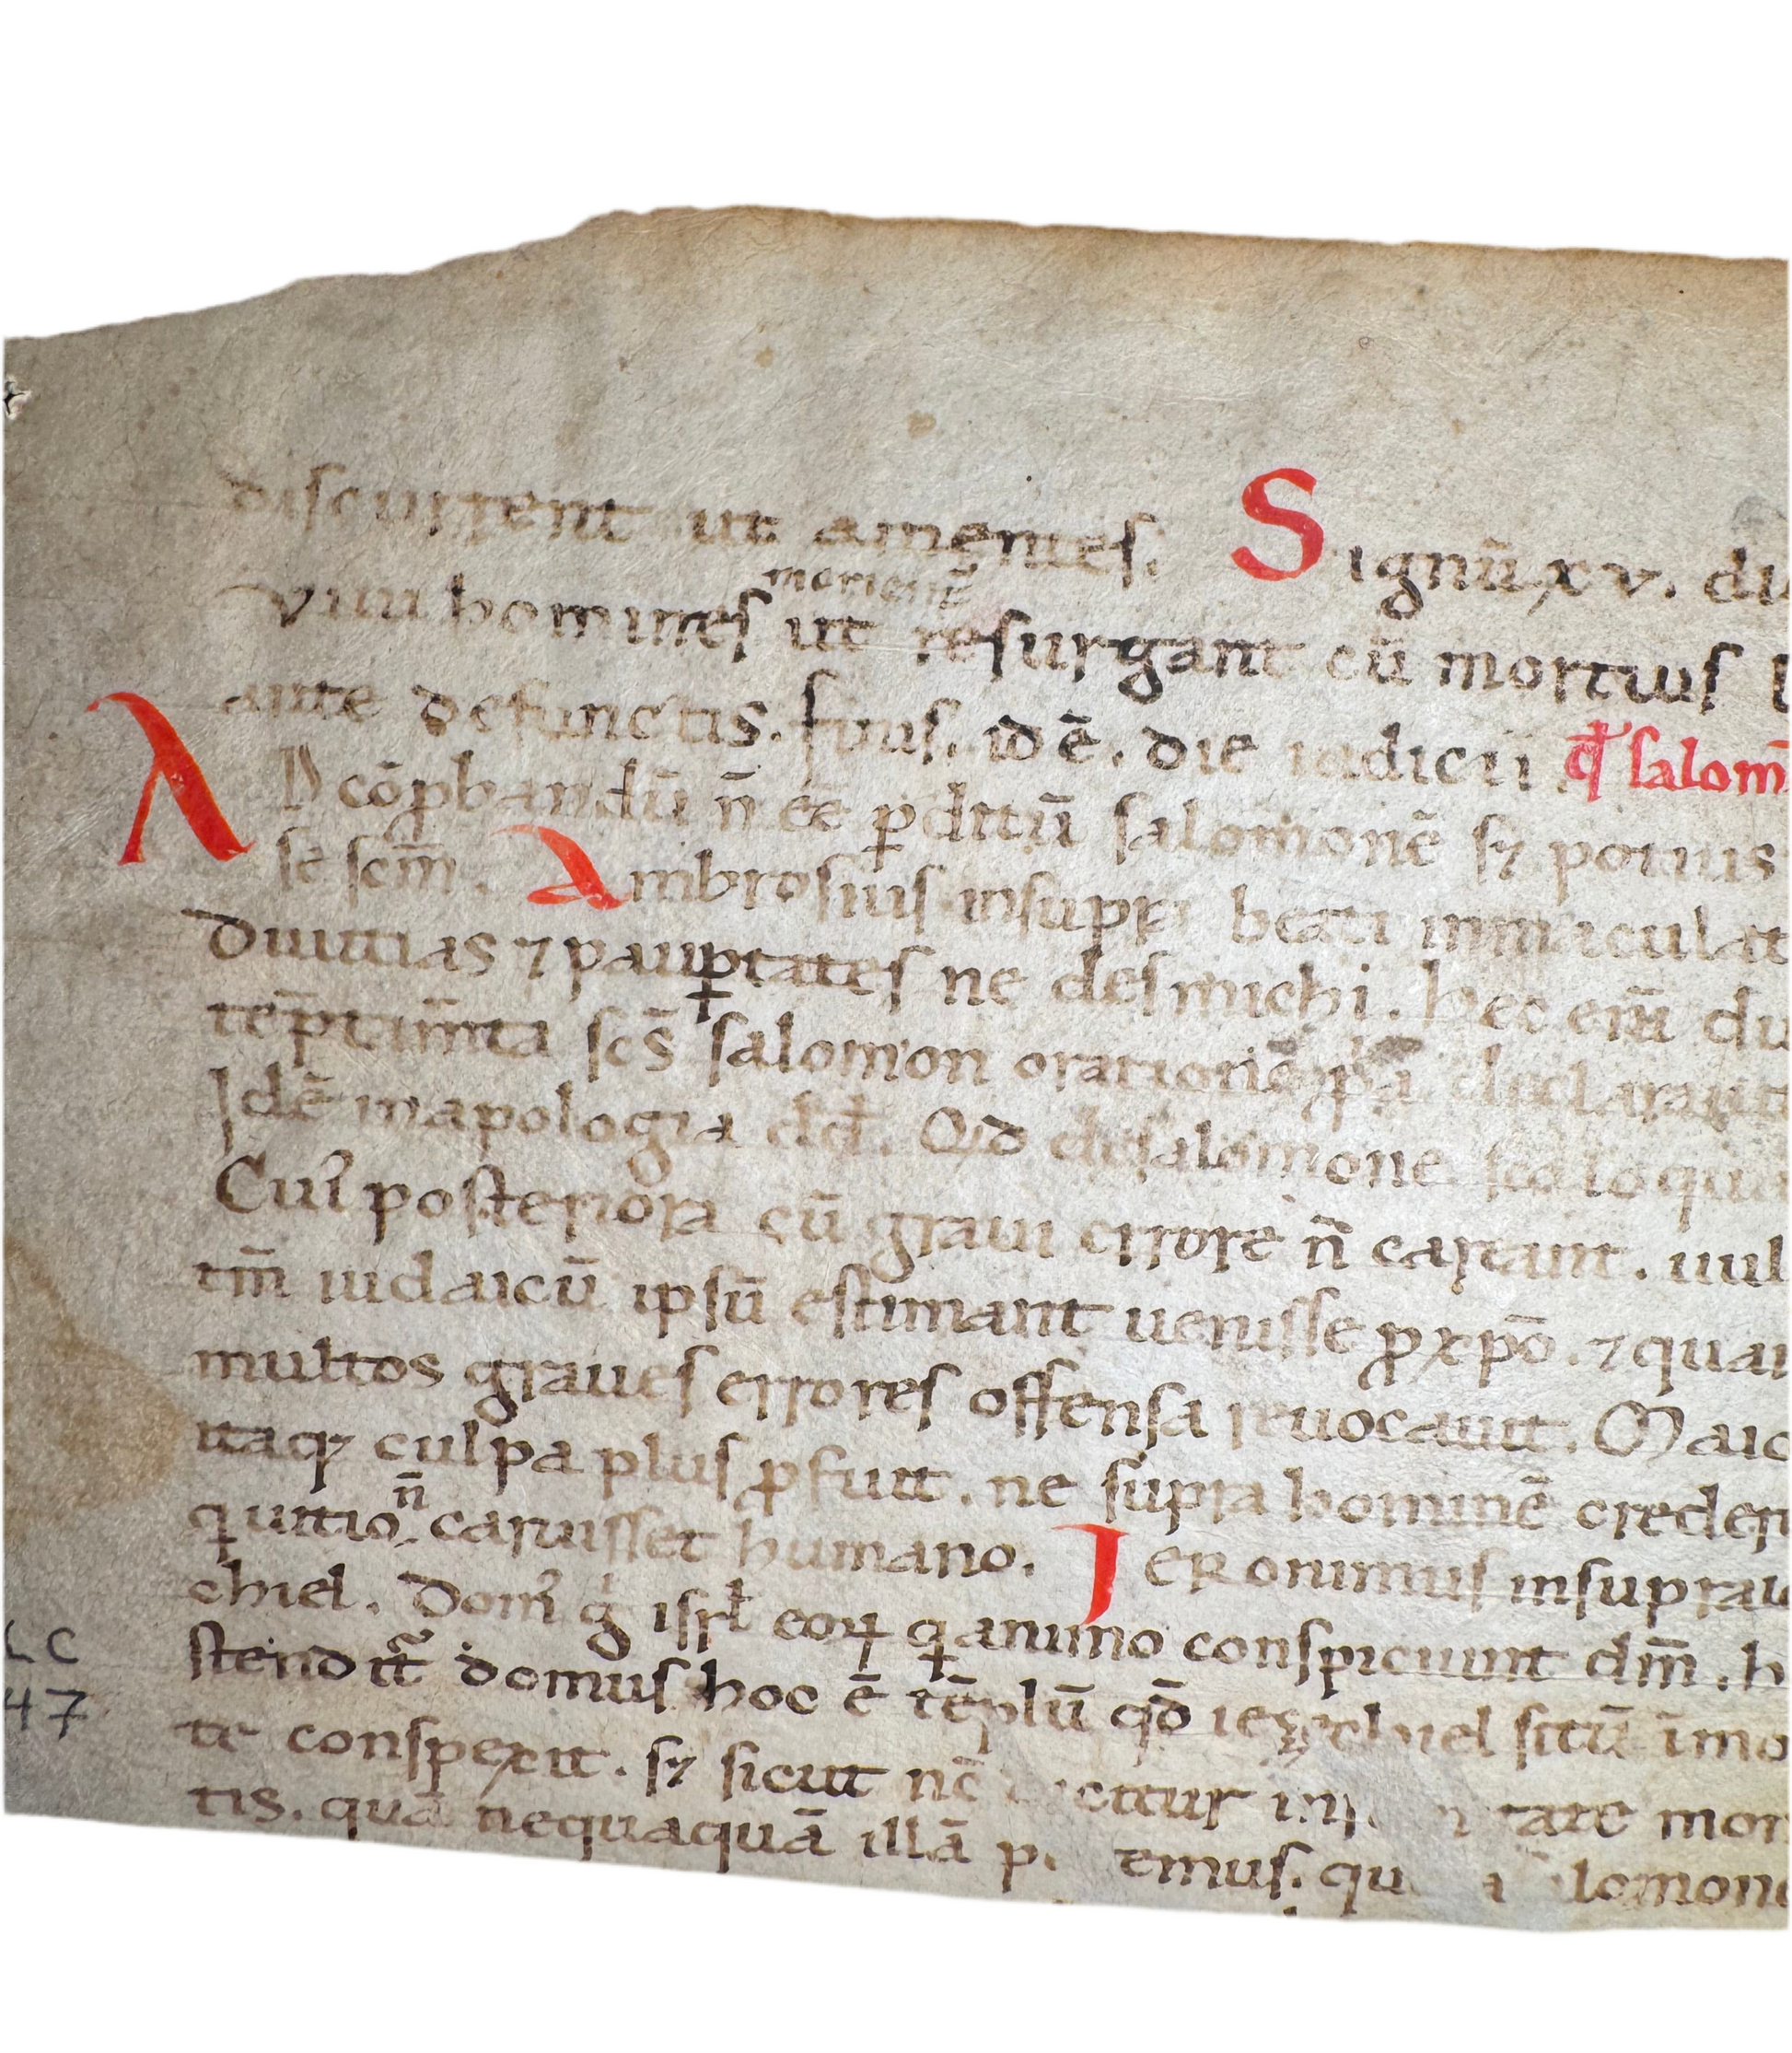 discurrent ut amentes. Signū xv. di
morient̄
Viui homines ut resurgant cū mortuis
ante defunctis. finis. id ē. die iudicii qđ salom̄
AD cōprobandū n̄ eē ꝑditū salomonē sꝫ potius
se scm̄. Ambrosius insupꝑ beati inmaculat
Diuitias ⁊ pauꝑtates ne des michi. hec eni du
tēptam̄ta scs̄ salomon orationē declarauit
Idē in apologia dd̄. Qđ de salomone loqua
Cuiꝰ posteriora cū graui errore n̄ careant. uul
tm̄ iudaicū ipsū estimant uenisse ꝓ xp̄o. ⁊ quan
multos graues errores offensa reuocauit. Maio
itaqꝫ culpa plus ꝓfuit. ne supra hominē creder
n̄
qui uitio caruisset humano. Ieronimus in supra
chiel. Domꝰ g̊ isrł eoꝝ q̇ animo conspiciunt dm̄. h
stenditꝰ domus hoc ē tēplū qđ iezechiel sitū ī mo
te conspexit. sꝫ sicut nc̄ mon
tis. quā nequaquā illā
LC
47